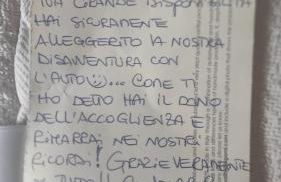 TUA GRANDE DISPONIBILITÀ
HAI SICURAMENTE
ALLEGGERITO LA NOSTRA
DISAVVENTURA CON
L'AUTO☺... COME TI
HO DETTO HAI IL DONO
DELL'ACCOGLIENZA E
RIMARRAI NEI NOSTRI
RICORDI! GRAZIE VERAMENTE